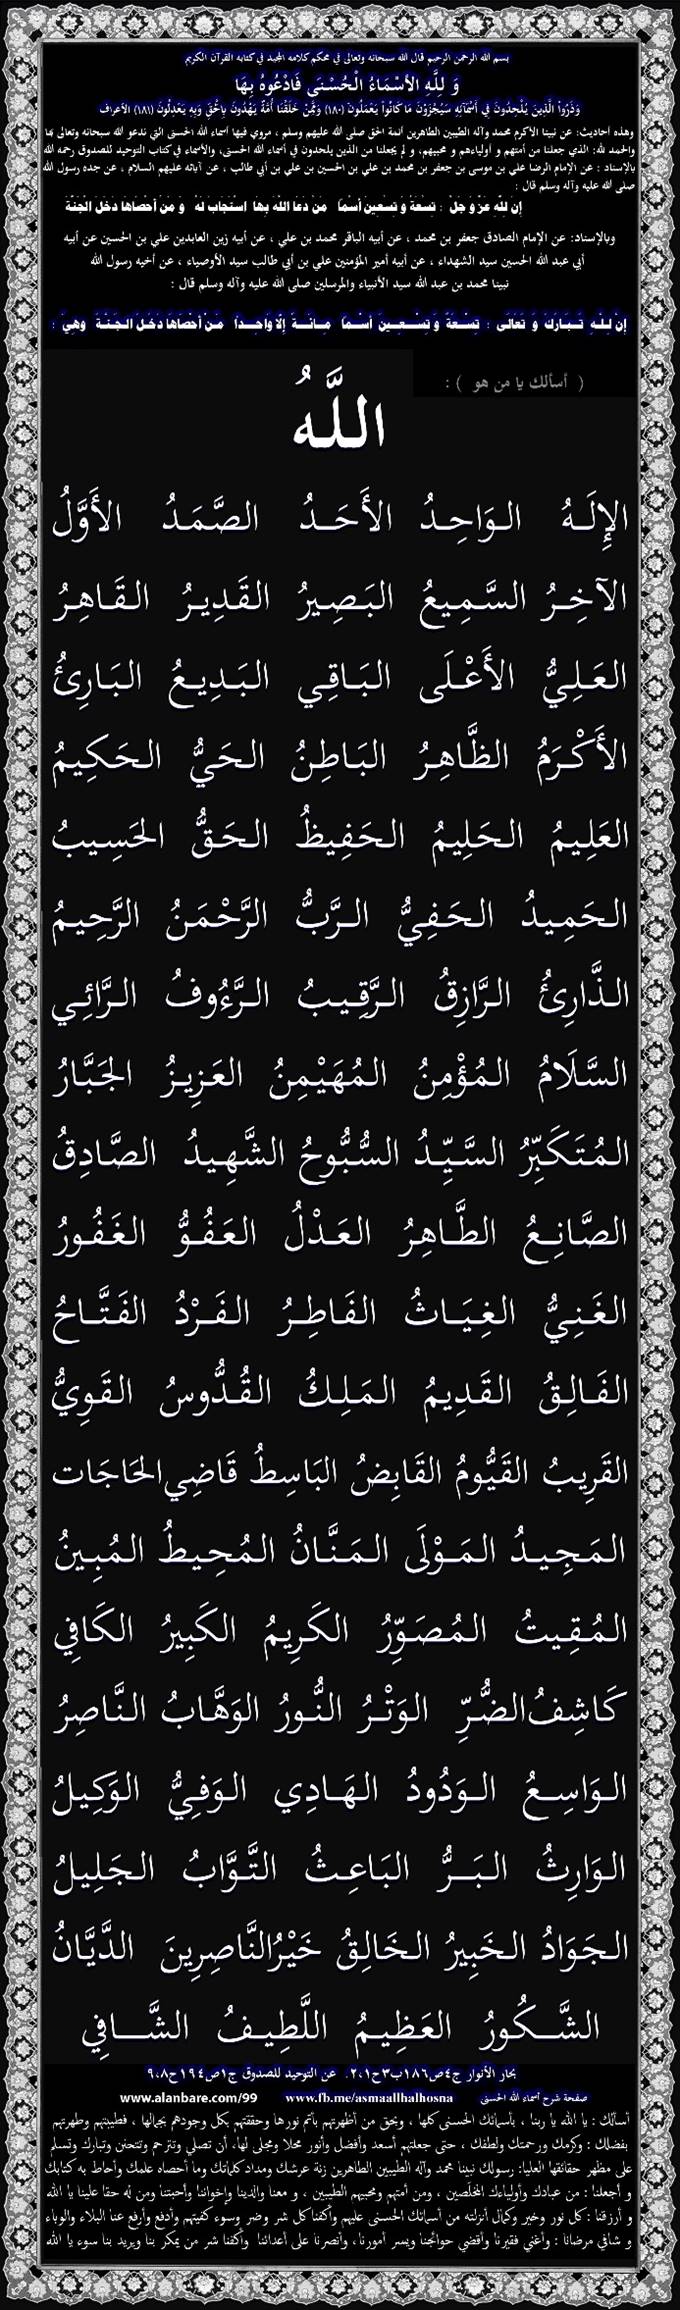 بسم الله الرحمن الرحيم قال الله سبحانه وتعالى في محكم كلامه المجيد في كتابه القرآن الكريم
وَ لِلَّهِ الأَسْمَاءُ الْحُسْنَى فَادْعُوهُ بِهَا
وَذَرُوا الَّذِينَ يُلْحِدُونَ فِي أَسْمَائِهِ سَيُجْزَوْنَ مَا كَانُوا يَعْمَلُونَ (١٨٠) وَمِمَّنْ خَلَقْنَا أُمَّةٌ يَهْدُونَ بِالْحَقِّ وَبِهِ يَعْدِلُونَ (١٨١) الأعراف
وهذه أحاديث: عن نبينا الأكرم محمد وآله الطيبين الطاهرين أئمة الحق صلى الله عليهم وسلم ، مروي فيها أسماء الله الحسنى التي ندعو الله سبحانه وتعالى بها
والحمد لله: الذي جعلنا من أمتهم و أولياءهم و محبيهم، و لم يجعلنا من الذين يلحدون في أسماء الله الحسنى، والأسماء في كتاب التوحيد للصدوق رحمه الله
بالإسناد : عن الإمام الرضا علي بن موسى بن جعفر بن محمد بن علي بن الحسين بن علي بن أبي طالب ، عن آبائه عليهم السلام ، عن جده رسول الله
صلى الله عليه وآله وسلم قال :
إن لله عز و جل : تسعة و تسعين أسما من دعا الله بها استجاب له و من أحصاها دخل الجنة
وبالإسناد: عن الإمام الصادق جعفر بن محمد ، عن أبيه الباقر محمد بن علي ، عن أبيه زين العابدين علي بن الحسين عن أبيه
أبي عبد الله الحسين سيد الشهداء ، عن أبيه أمير المؤمنين علي بن أبي طالب سيد الأوصياء ، عن أخيه رسول الله
نبينا محمد بن عبد الله سيد الأنبياء والمرسلين صلى الله عليه وآله وسلم قال :
إن لله تبارك و تعالى : تسعة و تسعين أسما مائة إلا واحدا من أحصاها دخل الجنة وهي :
( أسألك يا من هو ) :
اللَّهُ
الإِلَهُ الوَاحِدُ الأَحَدُ الصَّمَدُ الأَوَّلُ
الآخِرُ السَّمِيعُ البَصِيرُ القَدِيرُ القَاهِرُ
العَلِيُّ الأَعْلَى البَاقِي البَدِيعُ البَارِئُ
الأَكْرَمُ الظَّاهِرُ البَاطِنُ الحَيُّ الحَكِيمُ
العَلِيمُ الحَلِيمُ الحَفِيظُ الحَقُّ الحَسِيبُ
الحَمِيدُ الحَفِيُّ الرَّبُّ الرَّحْمَنُ الرَّحِيمُ
الذَّارِئُ الرَّازِقُ الرَّقِيبُ الرَّءُوفُ الرَّائِي
السَّلَامُ المُؤْمِنُ المُهَيْمِنُ العَزِيزُ الجَبَّارُ
المُتَكَبِّرُ السَّيِّدُ السُّبُّوحُ الشَّهِيدُ الصَّادِقُ
الصَّانِعُ الطَّاهِرُ العَدْلُ العَفُوُّ الغَفُورُ
الغَنِيُّ الغِيَاثُ الفَاطِرُ الفَرْدُ الفَتَّاحُ
الفَالِقُ القَدِيمُ المَلِكُ القُدُّوسُ القَوِيُّ
القَرِيبُ القَيُّومُ القَابِضُ البَاسِطُ قَاضِي الحَاجَات
المَجِيدُ المَوْلَى المَنَّانُ المُحِيطُ المُبِينُ
المُقِيتُ المُصَوِّرُ الكَرِيمُ الكَبِيرُ الكَافِي
كَاشِفُ الضُّرِّ الوَتْرُ النُّورُ الوَهَّابُ النَّاصِرُ
الوَاسِعُ الوَدُودُ الهَادِي الوَفِيُّ الوَكِيلُ
الوَارِثُ البَرُّ البَاعِثُ التَّوَّابُ الجَلِيلُ
الجَوَادُ الخَبِيرُ الخَالِقُ خَيْرُ النَّاصِرِينَ الدَّيَّانُ
الشَّكُورُ العَظِيمُ اللَّطِيفُ الشَّافِي
بحار الأنوار ج٤ص١٨٦ب٣ح١،٢. عن التوحيد للصدوق ج١ص١٩٤ح٨،٩
صفحة شرح أسماء الله الحسنى www.fb.me/asmaallhalhosna www.alanbare.com/99
أسألك : يا الله يا ربنا ، بأسمائك الحسنى كلها ، وبحق من أظهرتهم بأتم نورها وحققتهم بكل وجودهم بجمالها ، فطيبتهم وطهرتهم
بفضلك : وكرمك ورحمتك ولطفك ، حتى جعلتهم أسعد وأفضل وأنور محلا ومجلى لها، أن تصلي وتترحم وتتحنن وتبارك وتسلم
على مظهر حقائقها العليا: رسولك نبينا محمد وآله الطيبين الطاهرين زنة عرشك ومداد كلماتك وما أحصاه علمك وأحاط به كتابك
و أجعلنا : من عبادك وأوليائك المخلصين ، ومن أمتهم ومحبيهم الطيبين ، و معنا والدينا وإخواننا وأحبتنا ومن له حقا علينا يا الله
و أرزقنا : كل نور وخير وكمال أنزلته من أسمائك الحسنى عليهم وأكفنا كل شر وضر وسوء كفيتهم وأدفع وأرفع عنا البلاء والوباء
و شافي مرضانا : وأغني فقيرنا وأقضي حوائجنا ويسر أمورنا، وأنصرنا على أعدائنا وأكفنا شر من يمكر بنا ويريد بنا سوء يا الله